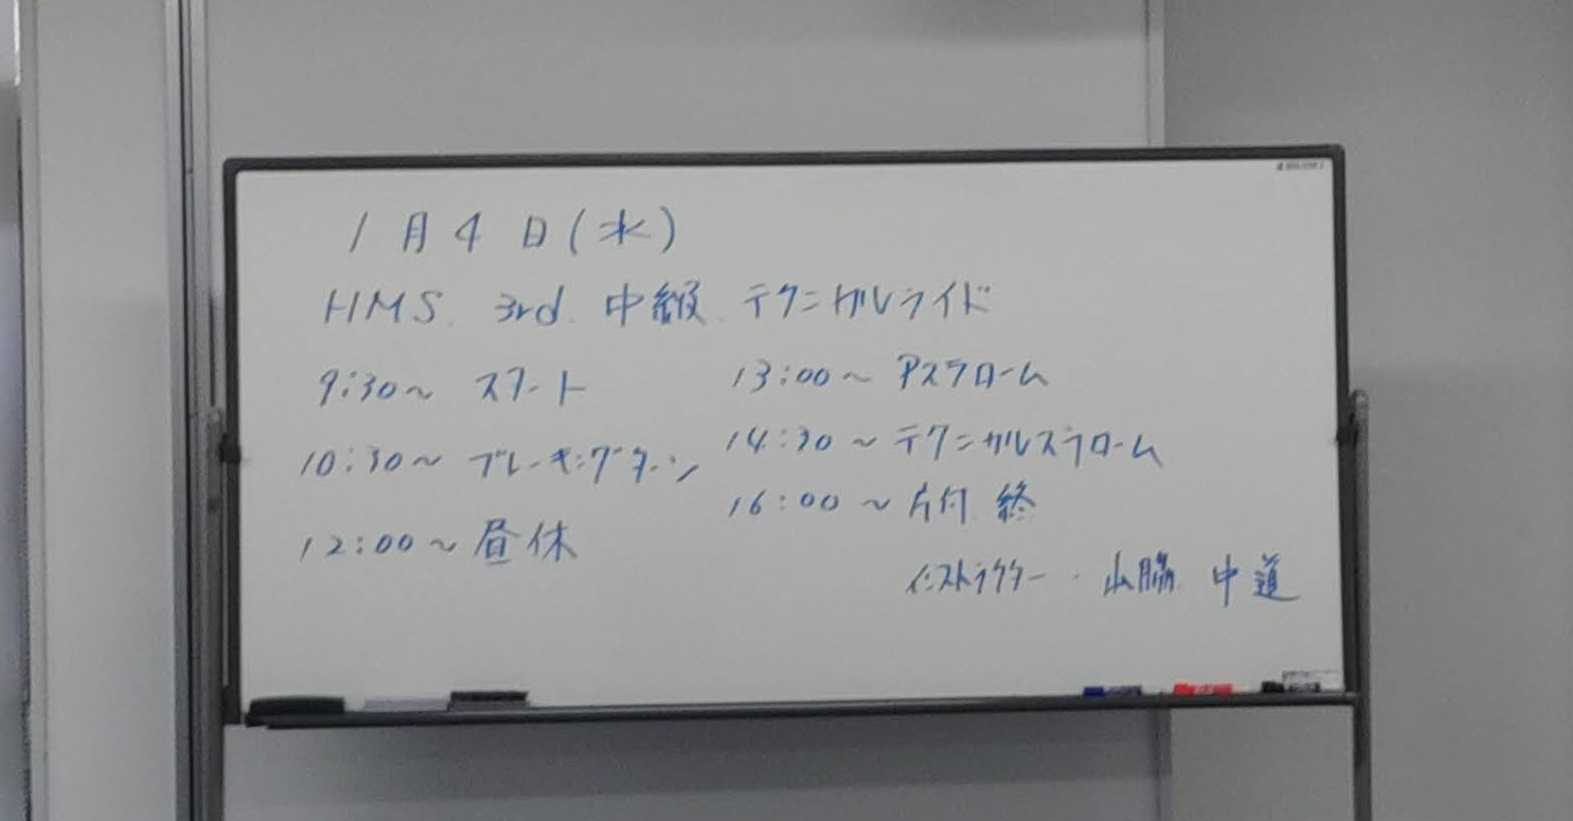 1月4日(水)
HMS. 3rd. 中級. テクニカルライド
9:30〜 スタート
10:30〜 ブレーキングターン
12:00〜 昼休
13:00〜 Pスラローム
14:30〜 テクニカルスラローム
16:00〜 片付 終
インストラクター・山脇 中道